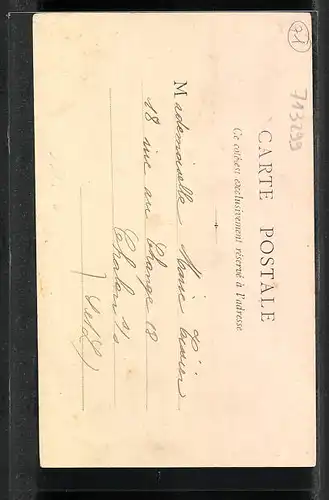 71
713299
CARTE POSTALE
Ce côté est exclusivement réservé à l'adresse
Mademoiselle Marie
18 rue au Change 18
Chalon s/